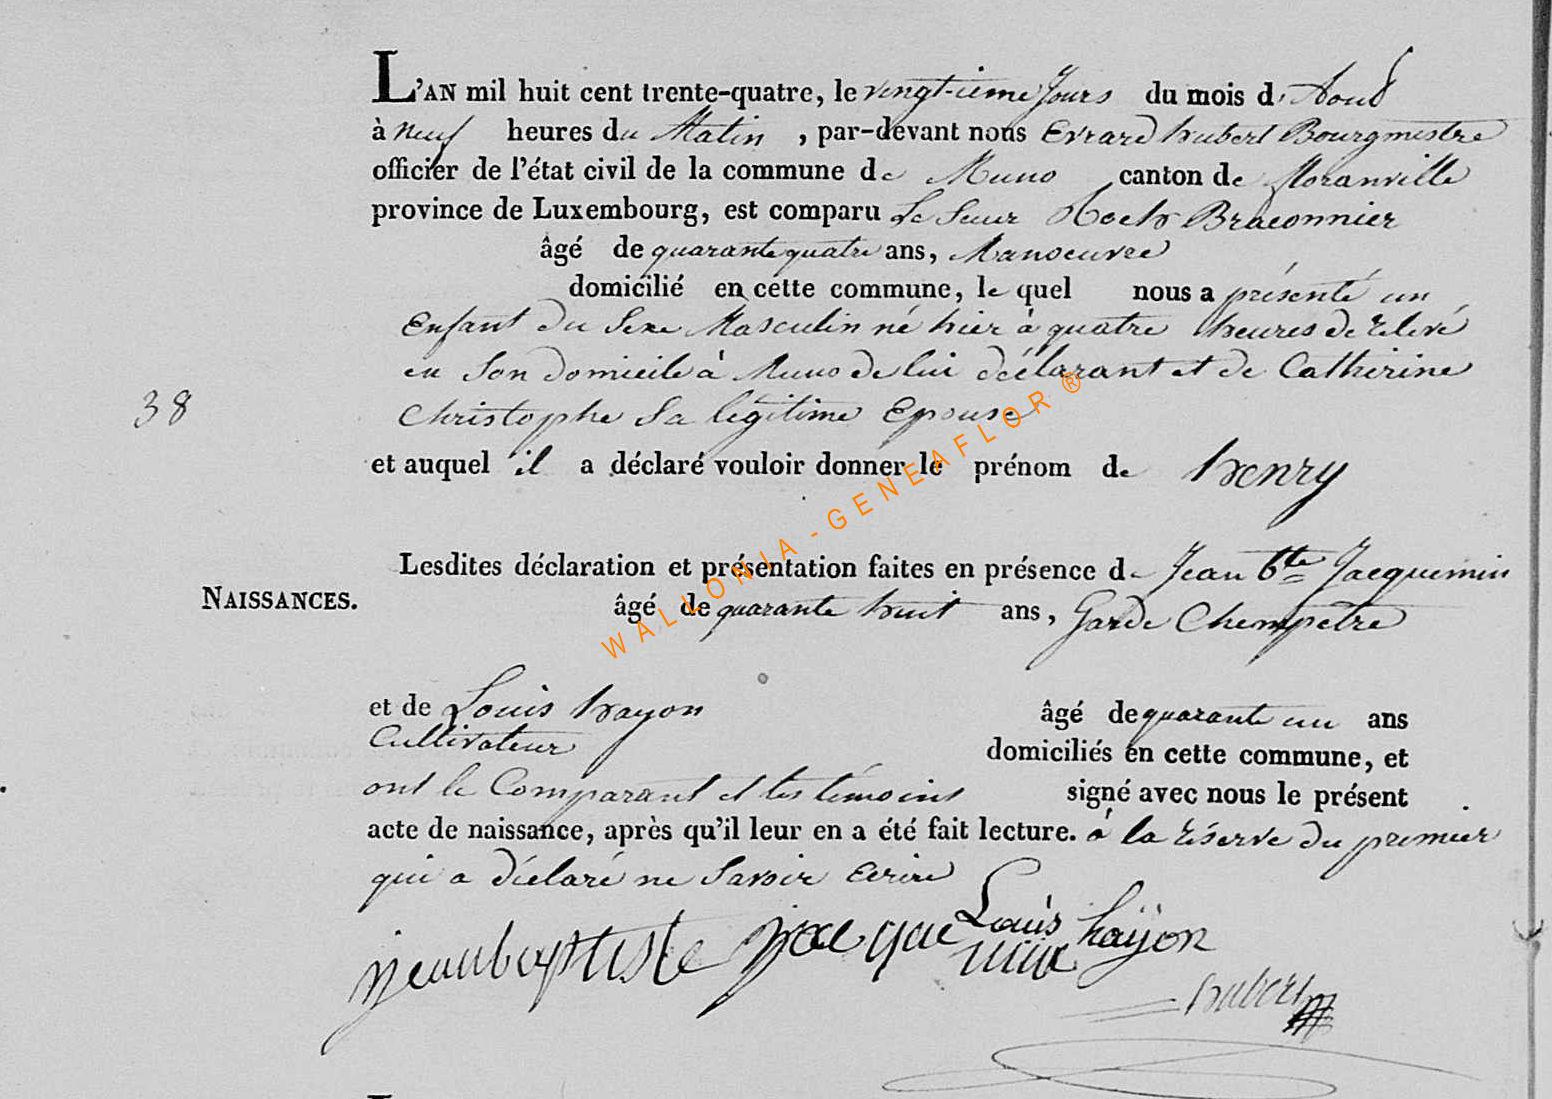 L'AN mil huit cent trente-quatre, le vingtieme Jours du mois d'Aout
à neuf heures du Matin , par-devant nous Evrard hubert Bourgmestre
officier de l'état civil de la commune de Muno canton de floranville
province de Luxembourg, est comparu Le Sieur Roch Braconnier
âgé de quarante quatre ans, Manoeuvre
domicilié en cette commune, le quel nous a présenté un
Enfant du Sexe Masculin né hier à quatre heures de relevé
en Son domicile à Muno de lui déclarant et de Catherine
38
Christophe Sa légitime Epouse
et auquel il a déclaré vouloir donner le prénom de henry
Lesdites déclaration et présentation faites en présence de Jean Bte Jacquemin
NAISSANCES.
âgé de quarante huit ans, Garde Chempetre
et de Louis hayon âgé de quarante un ans
Cultivateur
domiciliés en cette commune, et
ont le Comparant et les témoins signé avec nous le présent
acte de naissance, après qu'il leur en a été fait lecture. à la réserve du premier
qui a déclaré ne Savoir Ecrire
jean baptiste jacquemin
Louis hayon
hubert
WALLONIA-GENEAFLOR®